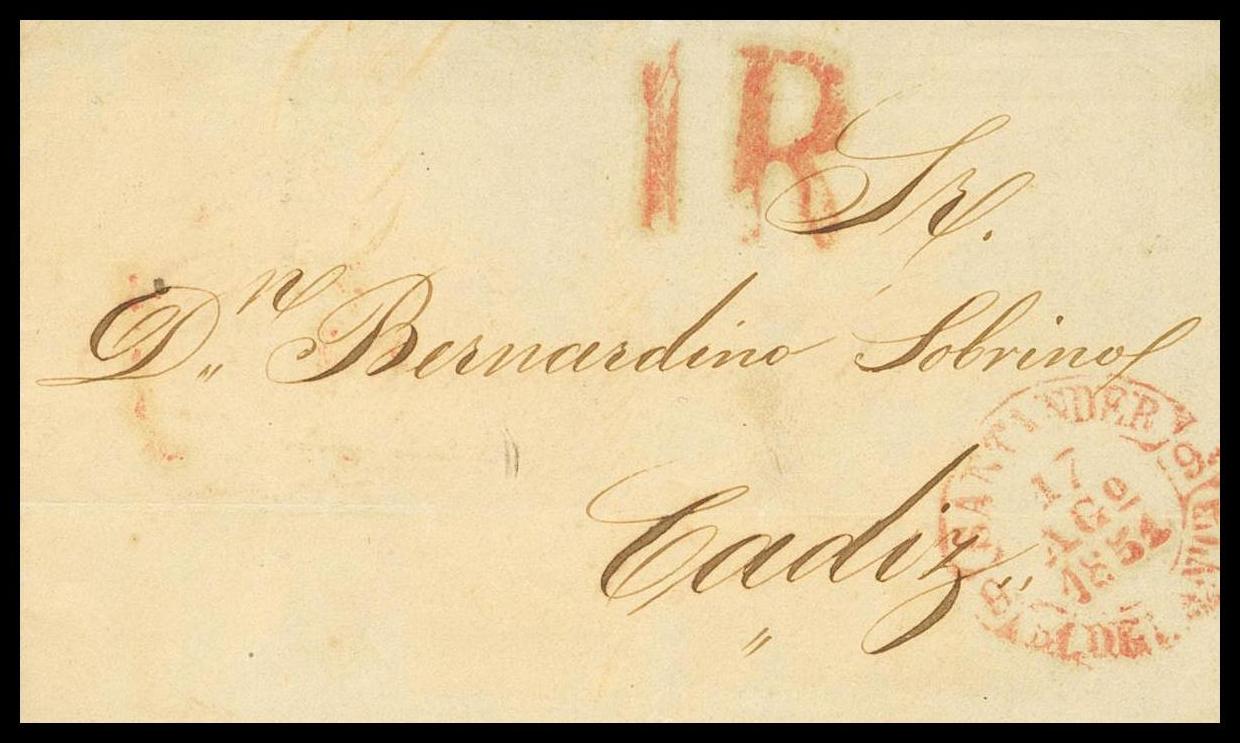 1 R
Sr.
Dn„ Bernardino Sobrinos
Cadiz„
"
SANTANDER
17
AGO